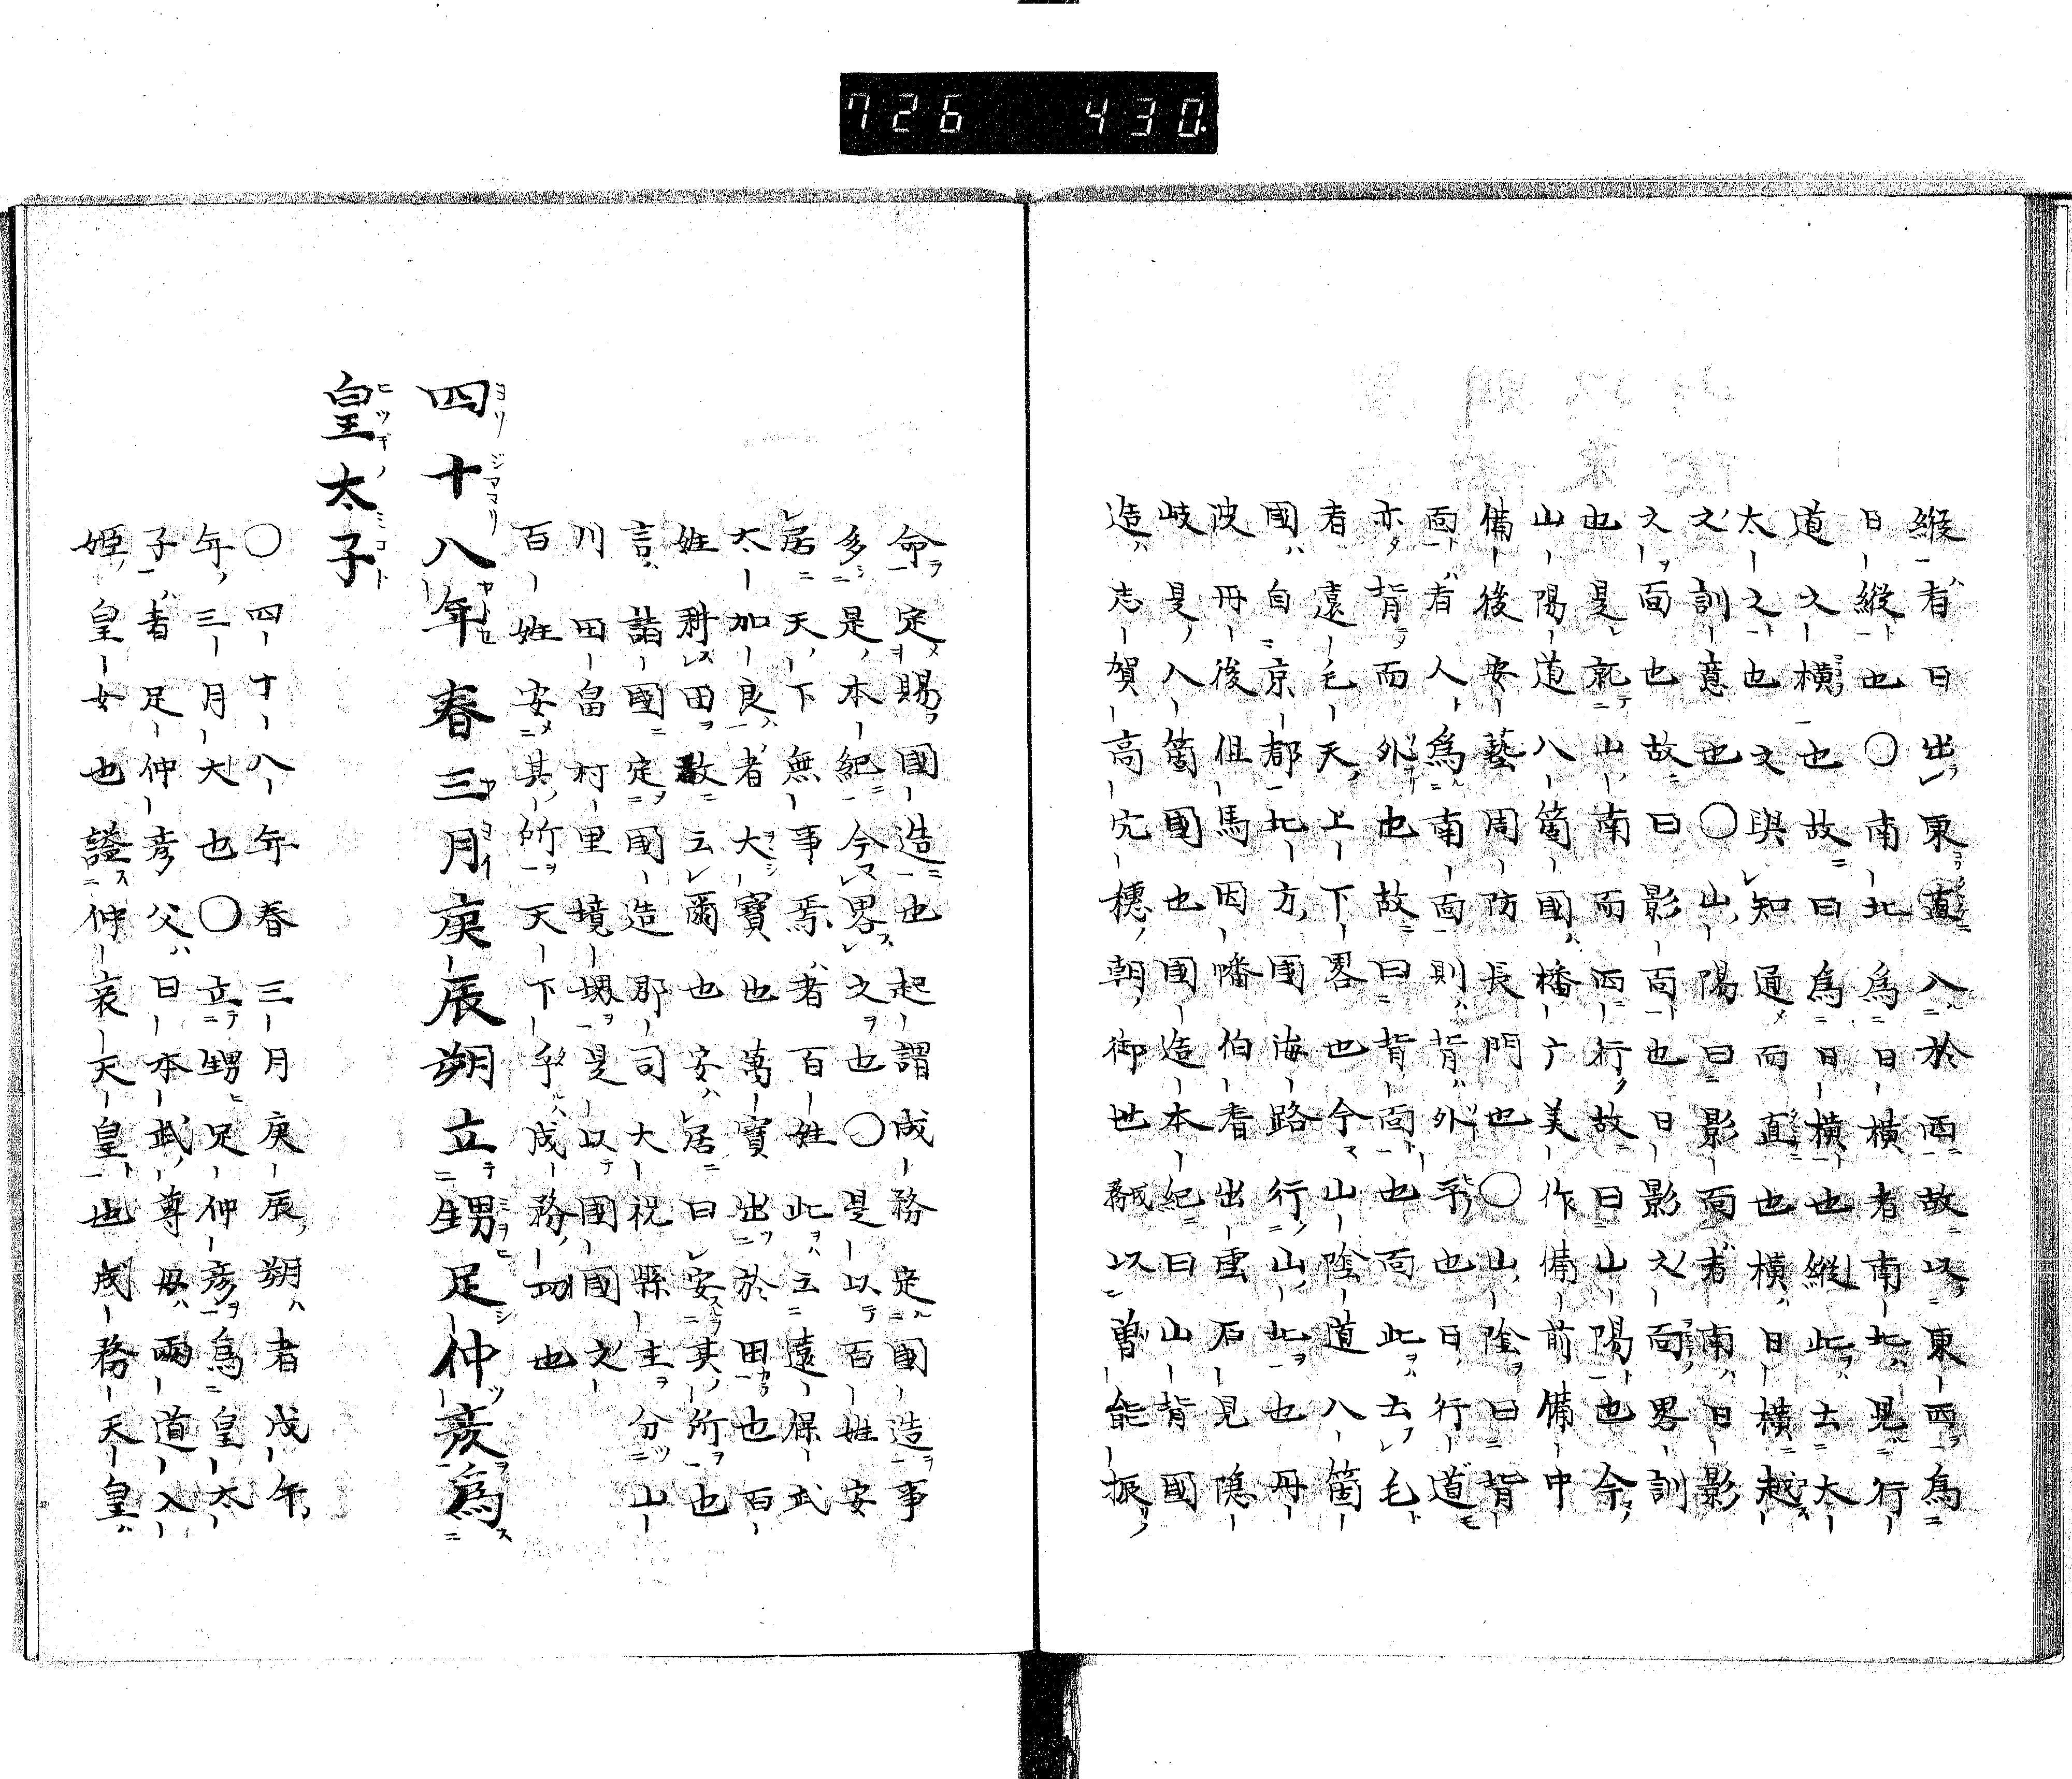 726 430
縦者日出東直入於西故以東西為
日縦也〇南北為日横者南北見行
道之横也故曰為日横也縦此云太
太之也文與知通而直也横日横越
之訓意也〇山陽曰影面者南日影
之面也故曰影面也日影之面畧訓
也是就山南而西行故曰山陽也今
山陽道八箇國播广美作備前備中
備後安藝周防長門也〇山陰曰背
面者人為南面則背外乎也日行道
亦背而外也故曰背面也而此云毛
者遠毛天上下畧也今山陰道八箇
國自京都北方國海路行山北也丹
波丹後但馬因幡伯耆出雲石見隠
岐是八箇國也國造本紀曰山背國
造志賀高穴穂朝御世以曽能振
命定賜國造也起謂成務定國造事
多是本紀今畧之也〇是以百姓安
居天下無事焉者百姓此云遠保武
太加良者大寶也萬寶出於田也百
姓耕田故云爾也安居曰安其所也
言詣國定國造郡司大祝縣主分山
川田畠村里境堺是以國國之
百姓安其所天下乎成務功也
四十八年春三月庚辰朔立甥足仲彦為
皇太子
〇四十八年春三月庚辰朔者戊午
年三月大也〇立甥足仲彦為皇太
子者足仲彦父日本武尊母兩道入
姫皇女也謚仲哀天皇也成務天皇